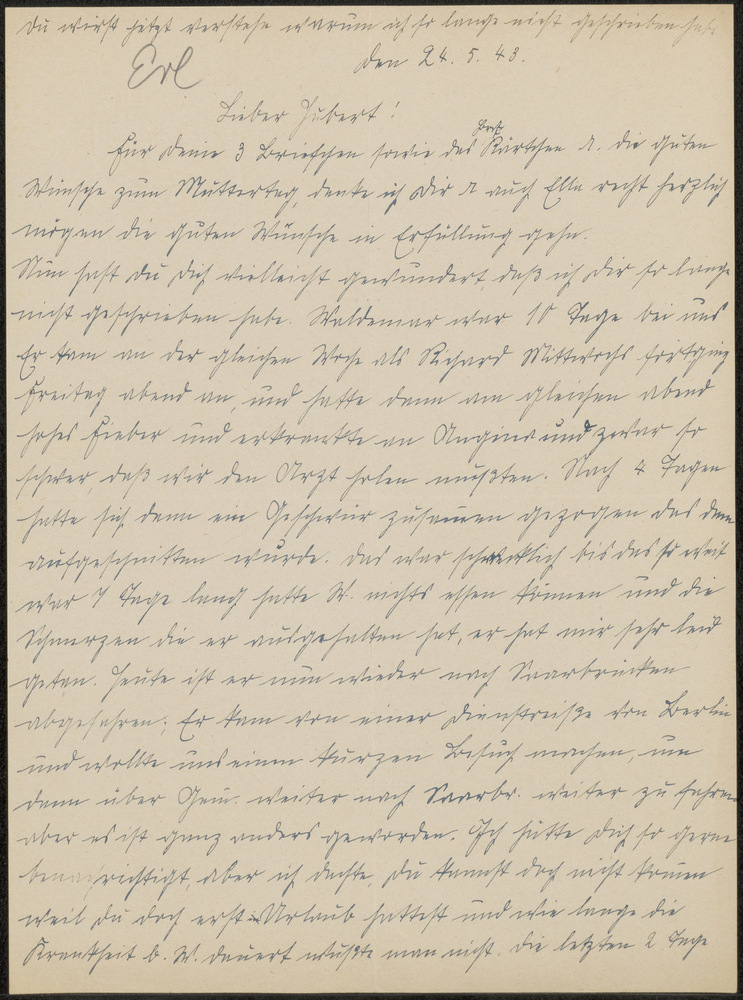 Du wirst jetzt verstehn warum ich so lange nicht geschrieben habe
Erl
den 24. 5. 43.
Lieber Hubert!
Für Deine 3 Briefchen sowie das Post Kärtchen u. die guten
Wünsche zum Muttertag, danke ich Dir u auch Ella recht herzlich
mögen die guten Wünsche in Erfüllung gehn.
Nun hast Du Dich vielleicht gewundert, daß ich Dir so lange
nicht geschrieben habe. Waldemar war 10 Tage bei uns
Er kam an der gleichen Woche als Richard Mittwochs fortging
Freitag abend an, und hatte dann am gleichen abend
hohes Fieber und erkrankte an Angina und zwar so
schwer, daß wir den Arzt holen mußten. Nach 4 Tagen
hatte sich dann ein Geschwür zusammen gezogen das dann
aufgeschnitten wurde. Das war schrecklich bis das so weit
war 7 Tage lang hatte W. nichts essen können und die
Schmerzen die er ausgehalten hat, er hat mir sehr leid
getan. Heute ist er nun wieder nach Saarbrücken
abgefahren; Er kam von einer Dienstreise von Berlin
und wollte uns einen kurzen Besuch machen, um
dann über Gem. weiter nach Saarbr. weiter zu fahren
aber es ist ganz anders geworden. Ich hätte Dich so gerne
benachrichtigt, aber ich dachte, Du kannst doch nicht kommen
weil Du doch erst Urlaub hattest und wie lange die
Krankheit b. W. dauert wußte man nicht. Die letzten 2 Tage